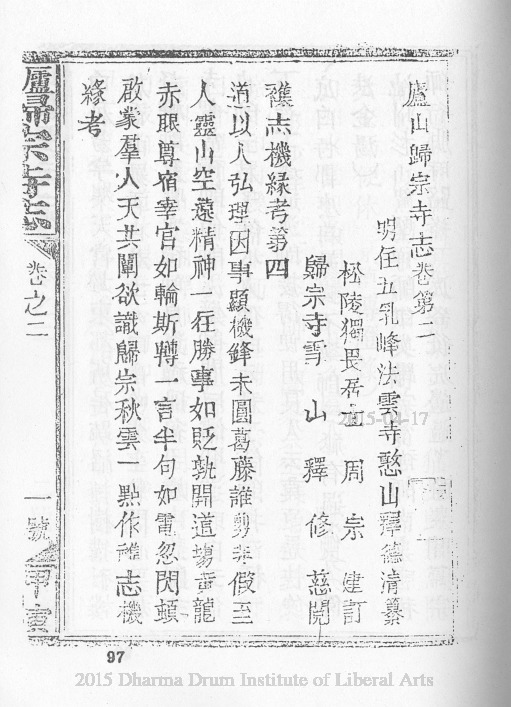 廬山歸宗寺志卷第二
明住五乳峰法雲寺憨山釋德清纂
松陵獨畏居士周宗建訂
歸宗寺雪山釋修慈閱
志機緣考第四
道以人弘理因事顯機鋒未圓葛藤誰剪非假至
人靈山空遠精神一在勝事如貶孰開道場黃龍
赤眼尊宿宰官如輪斯轉一言半句如電忽閃頓
啟蒙羣人天共闡欲識歸宗秋雲一點作雜志機
緣考
廬歸宗寺志
卷之二
一
號
2015-04-17
97
2015 Dharma Drum Institute of Liberal Arts